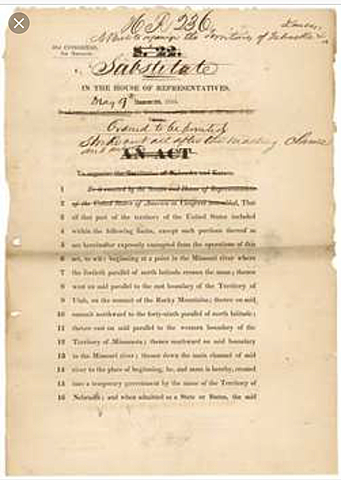 H R 236.
Kansas,
A Bill to organize the Territories of Nebraska &
33d CONGRESS,
1st Session.
S. 22.
Substitute
IN THE HOUSE OF REPRESENTATIVES.
May 9th
Ordered to be printed
Strike out all after the enacting Clause
and
AN ACT
To organize the Territories of Nebraska and Kansas.
1 Be it enacted by the Senate and House of Representatives
2 of the United States of America in Congress assembled, That
3 all that part of the territory of the United States included
4 within the following limits, except such portions thereof as
5 are hereinafter expressly exempted from the operations of this
6 act, to wit: beginning at a point in the Missouri river where
7 the fortieth parallel of north latitude crosses the same; thence
8 west on said parallel to the east boundary of the Territory of
9 Utah, on the summit of the Rocky Mountains; thence on said
10 summit northward to the forty-ninth parallel of north latitude;
11 thence east on said parallel to the western boundary of the
12 Territory of Minnesota; thence southward on said boundary
13 to the Missouri river; thence down the main channel of said
14 river to the place of beginning, be, and same is hereby, created
15 into a temporary government by the name of the Territory of
16 Nebraska; and when admitted as a State or States, the said